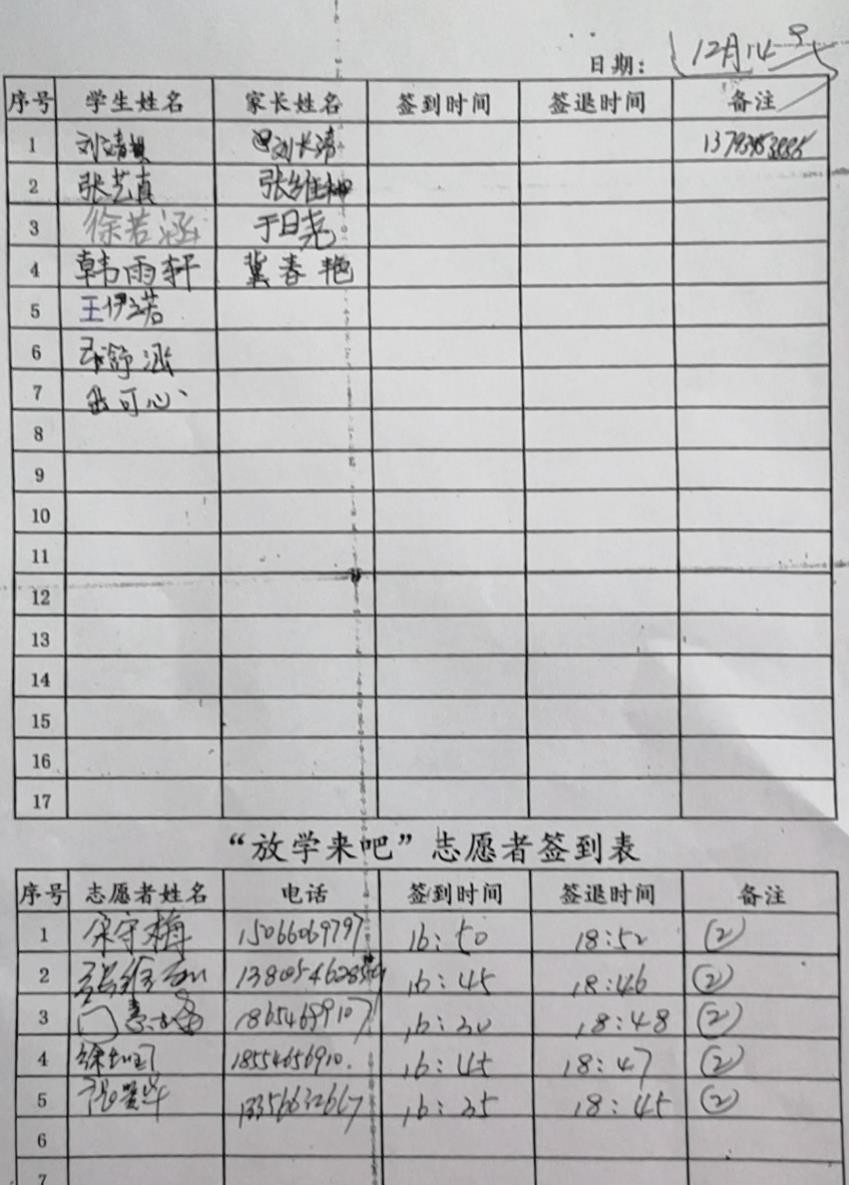 日期: 12月14号
序号 学生姓名 家长姓名 签到时间 签退时间 备注
1 刘 刘长涛
2 张艺真
3 徐若涵 于日尧
4 韩雨轩 冀春艳
5 王伊若
6 舒涵
7 可心
8
9
10
11
12
13
14
15
16
17
“放学来吧”志愿者签到表
序号 志愿者姓名 电话 签到时间 签退时间 备注
1 宋守梅 15066069797 16:50 18:52 ②
2 16:45 18:46 ②
3 16:30 18:48 ②
4 18554656910. 16:45 18:47 ②
5 13356632667 16:35 18:45 ②
6
7